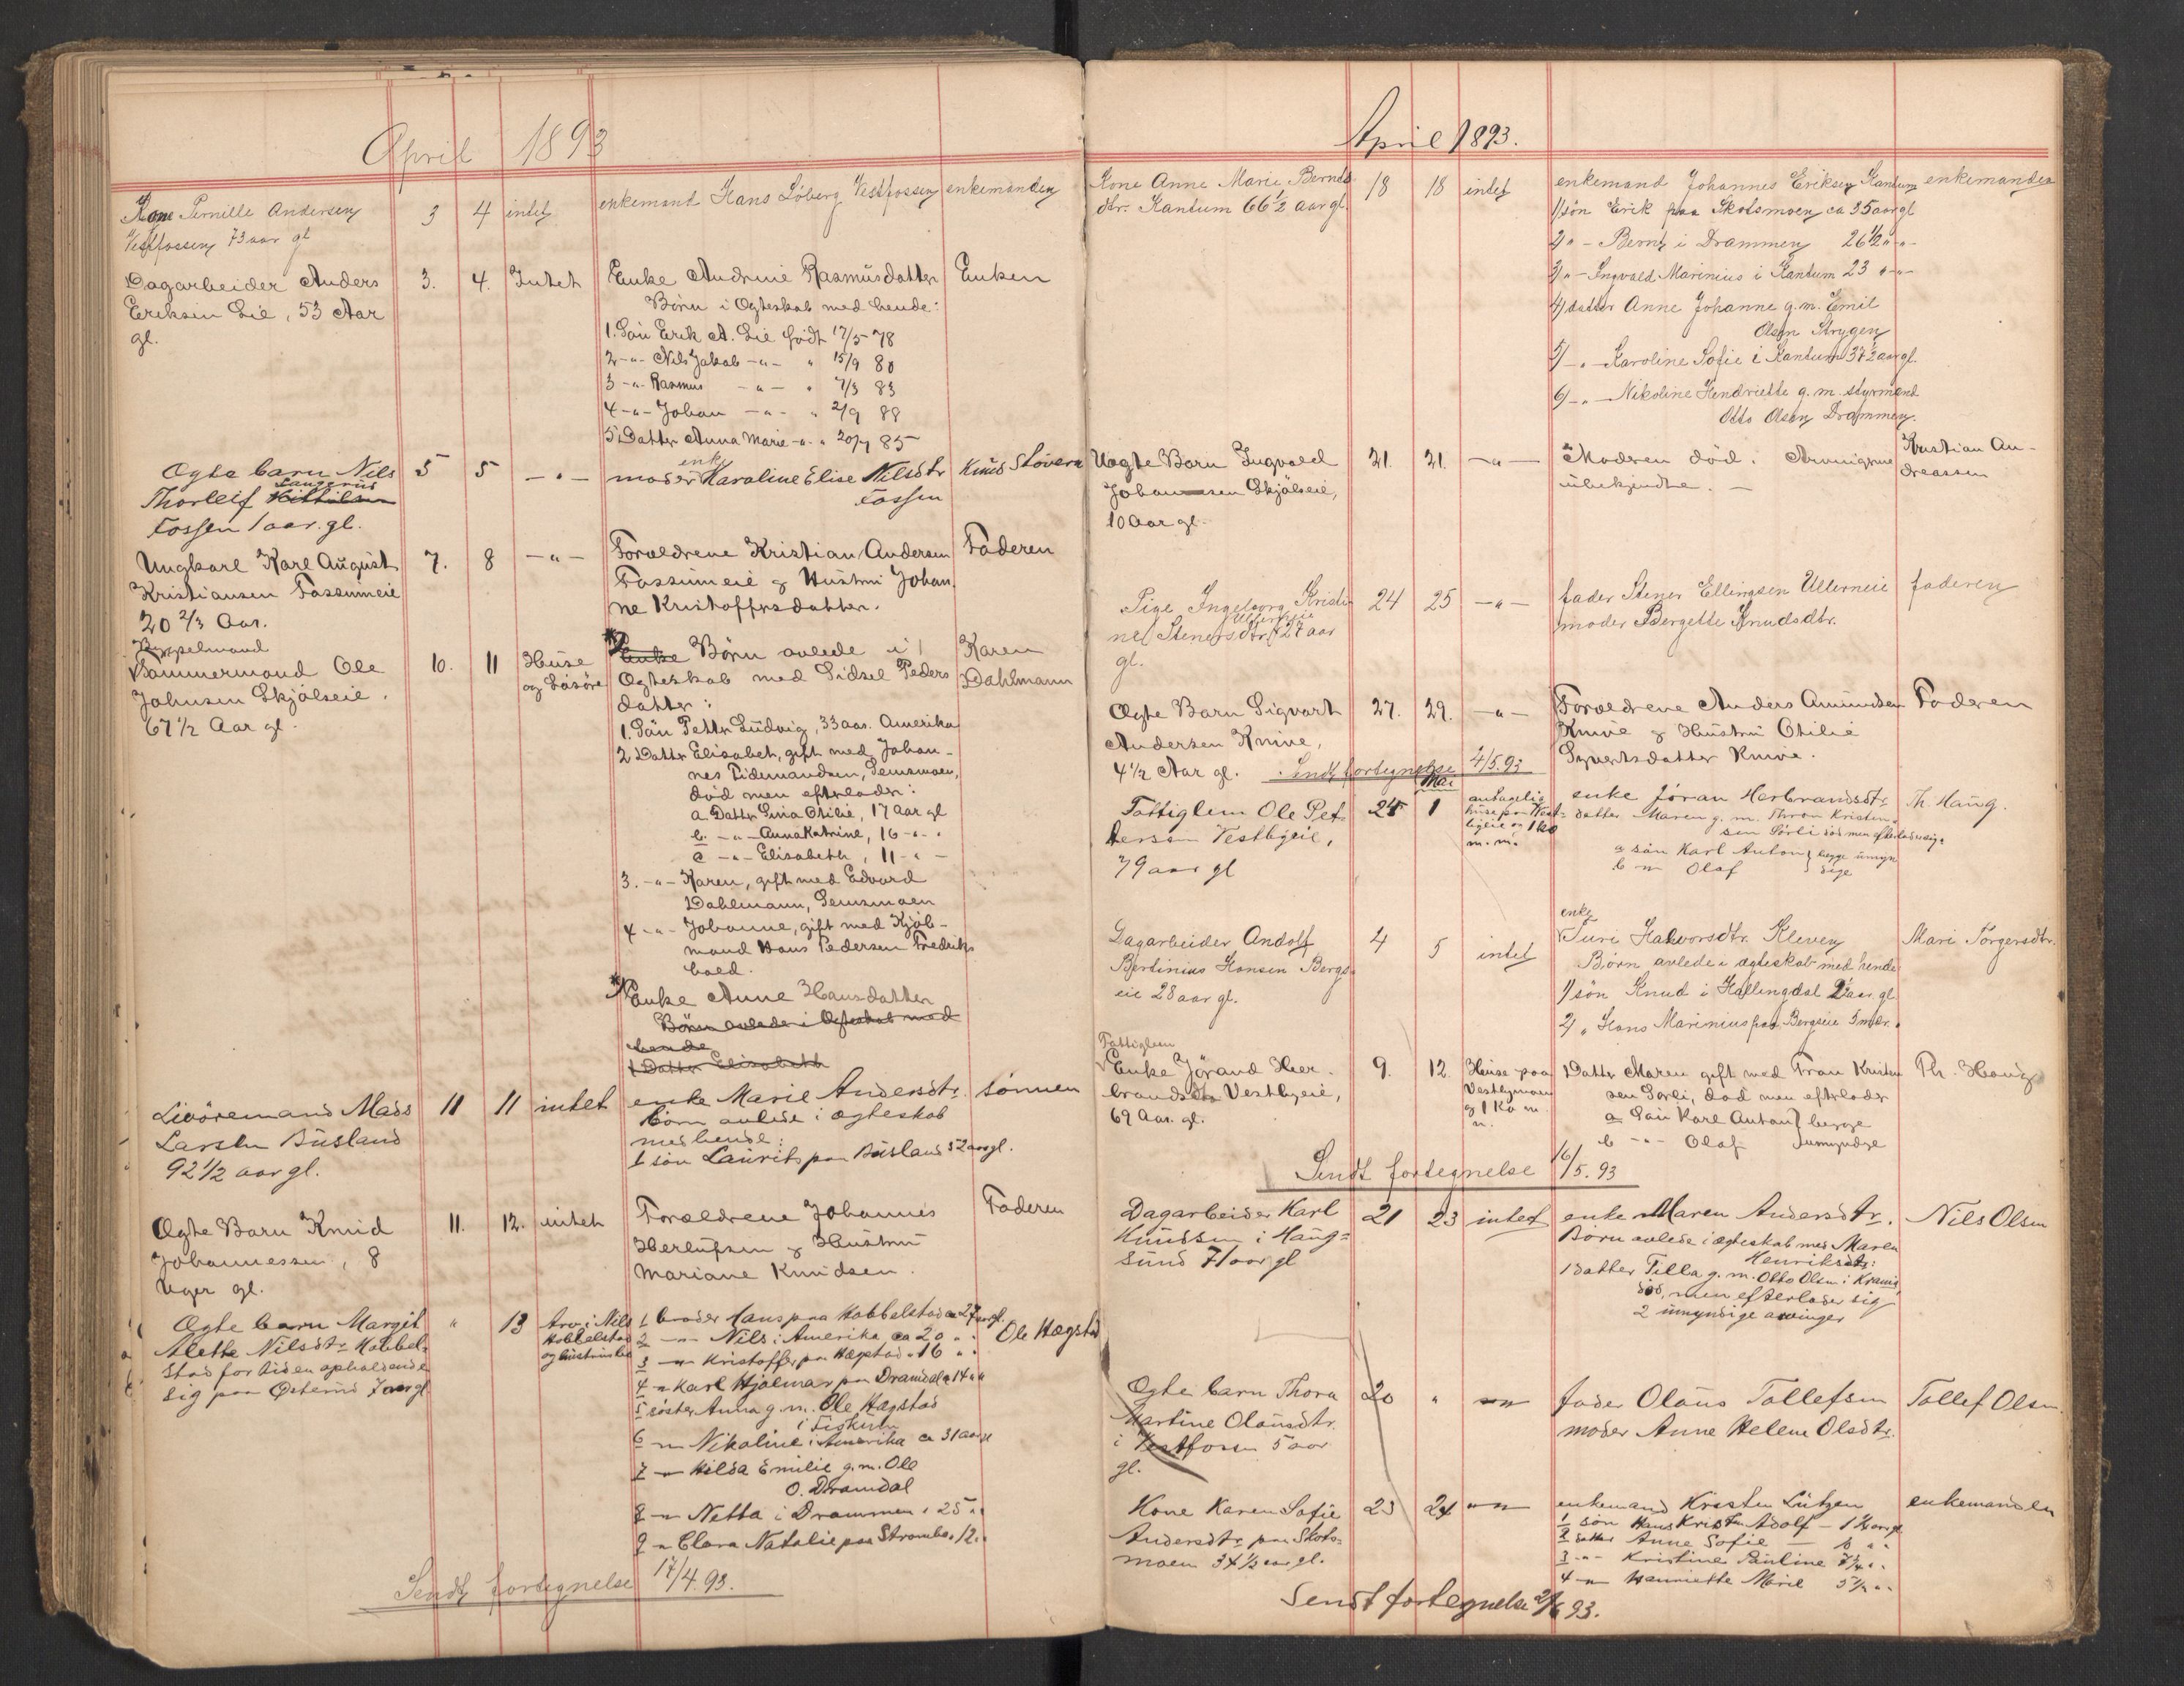 April 1893
Kone Pernille Andersen 3 4 intet enkemand Hans Loberg Vestfossen enkemanden
Vestfossen 73 aar gl
Dagarbeider Anders 3. 4. Intet Enke Andrine Rasmusdatter Enken
Eriksen Lie, 53 Aar Børn i Ægteskab med hende:
gl. 1. Søn Erik A. Lie født 17/5 78
2 -"- Nils Jakob -"- " 15/9 80
3 -"- Rasmus -"- " 7/3 83
4 -"- Johan -"- " 2/9 88
5 Datter Anna Marie -"- " 20/7 85
Ægte barn Nils 5 5 -"- moder enke Karoline Elise Nilsdtr Knud Støvern
Thorleif Langerud Fossen
Fossen 1 aar. gl.
Ungkarl Karl August 7. 8 -"- Forældrene Kristian Andersen Faderen
Kristiansen Fossumeie Fossumeie og Hustru Johan
20 2/3 Aar. ne Kristoffersdatter.
Tømmermand Ole 10. 11 Huse Enke Børn avlede i Karen
Johnsen Skjølseie. og Løsøre Ægteskab med Sidsel Peders Dahlmann
67 1/2 Aar gl. datter:
1. Søn Petter Ludvig, 33 aar. Amerika
2 Datter Elisabet, gift med Johan-
nes Tidemandsen, Semsmoen,
død men efterlader:
a. Datter Lina Otilie, 17 Aar gl
b. -"- Anna Katrine, 16 -"-
c -"- Elisabeth, 11 -"-
3. -"- Karen, gift med Edvard
Dahlmann, Semsmoen
4 -"- Johanne, gift med Kjøb-
mand Hans Pedersen Fredriks
hald.
enke Anne Hansdatter
Børn avlede i Ægteskab med
hende
1 Datter Elisabeth
Livøremand Mads 11 11 intet enke Marie Andersdtr. sønnen
Larsen Busland børn avlede i ægteskab
92 1/2 aar gl. med hende:
1 søn Laurits paa Busland 52 aar gl.
Ægte Barn Knud 11. 12. intet Forældrene Johannes Faderen
Johannessen, 8 Herlufsen og Hustru
Uger gl. Mariane Knudsen.
Ægte barn Margit " 13 Arv i Nils 1 broder Hans paa Hobbelstad ca 27 aar gl.
Alette Nilsdtr Hobbel- Hobbelstad 2 -"- Nils i Amerika ca 20 " " Ole Hægstad
stad for tiden opholdende og hustrus bo 3 -"- Kristoffer paa Hægstad " 16 " "
sig paa Østerud 7 aar gl 4 -"- Karl Hjalmar paa Dramdal " 14 " "
5 søster Anna g. m. Ole Hægstad
i Fiskum
6 -"- Nikoline i Amerika ca 31 aar gl
7 -"- Hilda Emilie g. m. Ole
O. Dramdal
8 -"- Netta i Drammen " 25 "
9 -"- Clara Natalie paa Strømbo " 12 "
Sendt fortegnelse 17/4 93.
April 1893.
Kone Anne Marie Bernts 18 18 intet enkemand Johannes Eriksen Kantum enkemanden
dtr. Kantum 66 1/2 aar gl. 1/ søn Erik paa Skotsmoen ca 35 aar gl
2/ " - Bernt i Drammen 26 1/2 " -"-
3/ " - Ingvald Marinius i Kantum 23 " -"-
4/ datter Anne Johanne g. m. Emil
Olsen Strygen
5/ -"- Karoline Sofie i Kantum 37 1/2 aar gl.
6/ -"- Nikoline Hendriette g. m. styrmand
Otto Olsen Drammen.
Uægte Barn Ingvald 21. 21. -"- Moderen død. Arvingerne Kristian An-
Johannesen Skjølseie, ubekjendte. dreassen
10 Aar gl.
Pige Ingeborg Kristi 24 25 -"- fader Stener Ellingsen Ullerneie faderen
ne Stenersdtr. Ullerneie 27 aar moder Bergette Knudsdtr.
gl.
Ægte Barn Sigvart 27. 29. -"- Forældrene Anders Amundsen Faderen
Andersen Knive, Knive og Hustru Otilie
4 1/2 Aar gl. Syvertsdatter Knive.
Sendt fortegnelse 4/5. 93
Mai
Fattiglem Ole Pet- 25 1 antagelig enke Jøran Herbrandsdtr Th. Haug.
tersen Vestbyeie, huse paa Vest- datter Maren g. m. Thron Kristen-
79 aar gl byeie og 1 ko m. m. sen Sørli død men efterlader sig.
a søn Karl Anton } begge umyn
b -"- Olaf } dige
Dagarbeider Andolf 4 5 intet enke Turi Halvorsdtr. Kleven Mari Torgersdtr.
Bertinius Hansen Bergs Børn avlede i ægteskab med hende
eie 28 aar gl. 1/ søn Knud i Hallingdal 2 aar gl
2/ " Hans Marinius paa Bergseie 5 mdr.
Fattiglem
Enke Jørand Her- 9. 12. Huse paa 1 Datter Maren gift med Tron Kristen Th. Haug
brandsdtr Vestbyeie, sen Sørli, død men efterlader
69 Aar. gl. og 1 Ko m. m. a Søn Karl Anton } begge
b -"- Olaf } umyndge
Sendt fortegnelse 16/5. 93
Dagarbeider Karl 21 23 intet enke Maren Andersdtr. Nils Olsen
Knudsen i Haug- Børn avlede i ægteskab med Maren
sund 71 aar gl Henriksdtr:
1 datter Tilla g. m. Otto Olsen i Krania
død, men efterlader sig
2 umyndige arvinger
Ægte barn Thora 20 " -"- fader Olaus Tollefsen Tollef Olsen
Martine Olausdtr. moder Anne Helene Olsdtr.
i Vestfossen 5 aar
gl.
Kone Karen Sofie 23 24 -"- enkemand Kristen Lützen enkemanden
Andersdtr paa Skots- 1 søn Hans Kristen Adolf - 1 1/2 aar gl.
moen 34 1/2 aar gl. 2 datter Anne Sofie
3 -"- Kristine Pauline
4 -"- Hanriette Marie 5 1/2 "
Sendt fortegnelse 2/6 93.